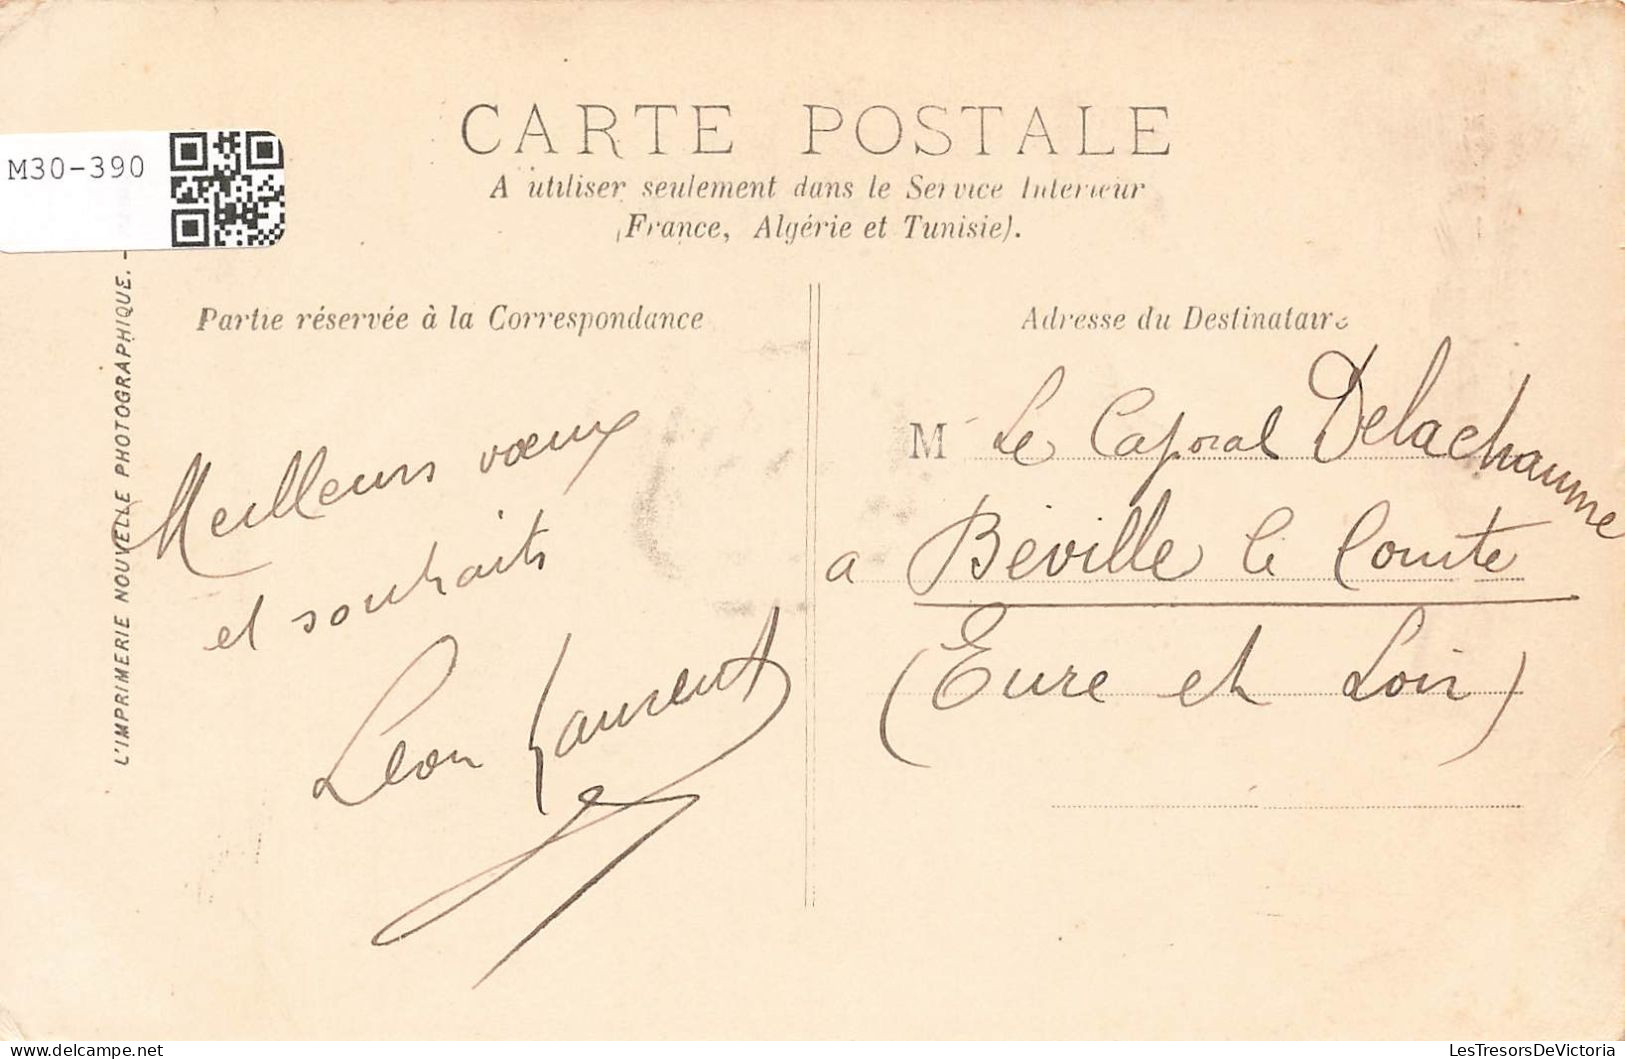 CARTE POSTALE
A utiliser seulement dans le Service Interieur
(France, Algérie et Tunisie).
M30-390
L'IMPRIMERIE NOUVELLE PHOTOGRAPHIQUE. -
Partie réservée à la Correspondance
Meilleurs vœux
et souhaits
Léon Laurent
Adresse du Destinataire
M Le Caporal Delachaume
a Béville le Comte
(Eure et Loir)
delcampe.net
LesTresorsDeVictoria